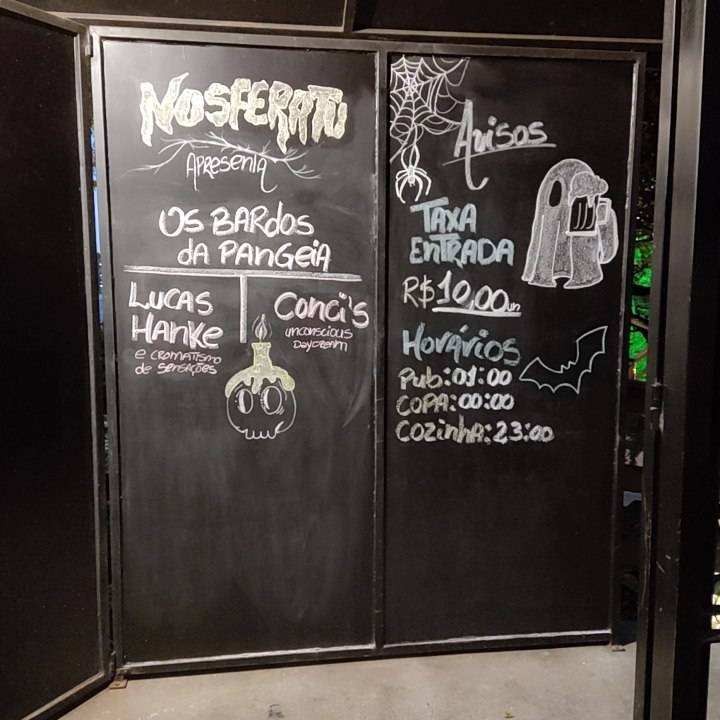 NOSFERATU
APRESENTA
OS BARDOS
DA PANGEIA
LUCAS
HANKE
E CROMATISMO
DE SENSAÇÕES
CONCI'S
UNCONSCIOUS
DAYDREAM
Avisos
TAXA
ENTRADA
R$10,00un
HORÁRIOS
PUB:01:00
COPA:00:00
COZINHA:23:00